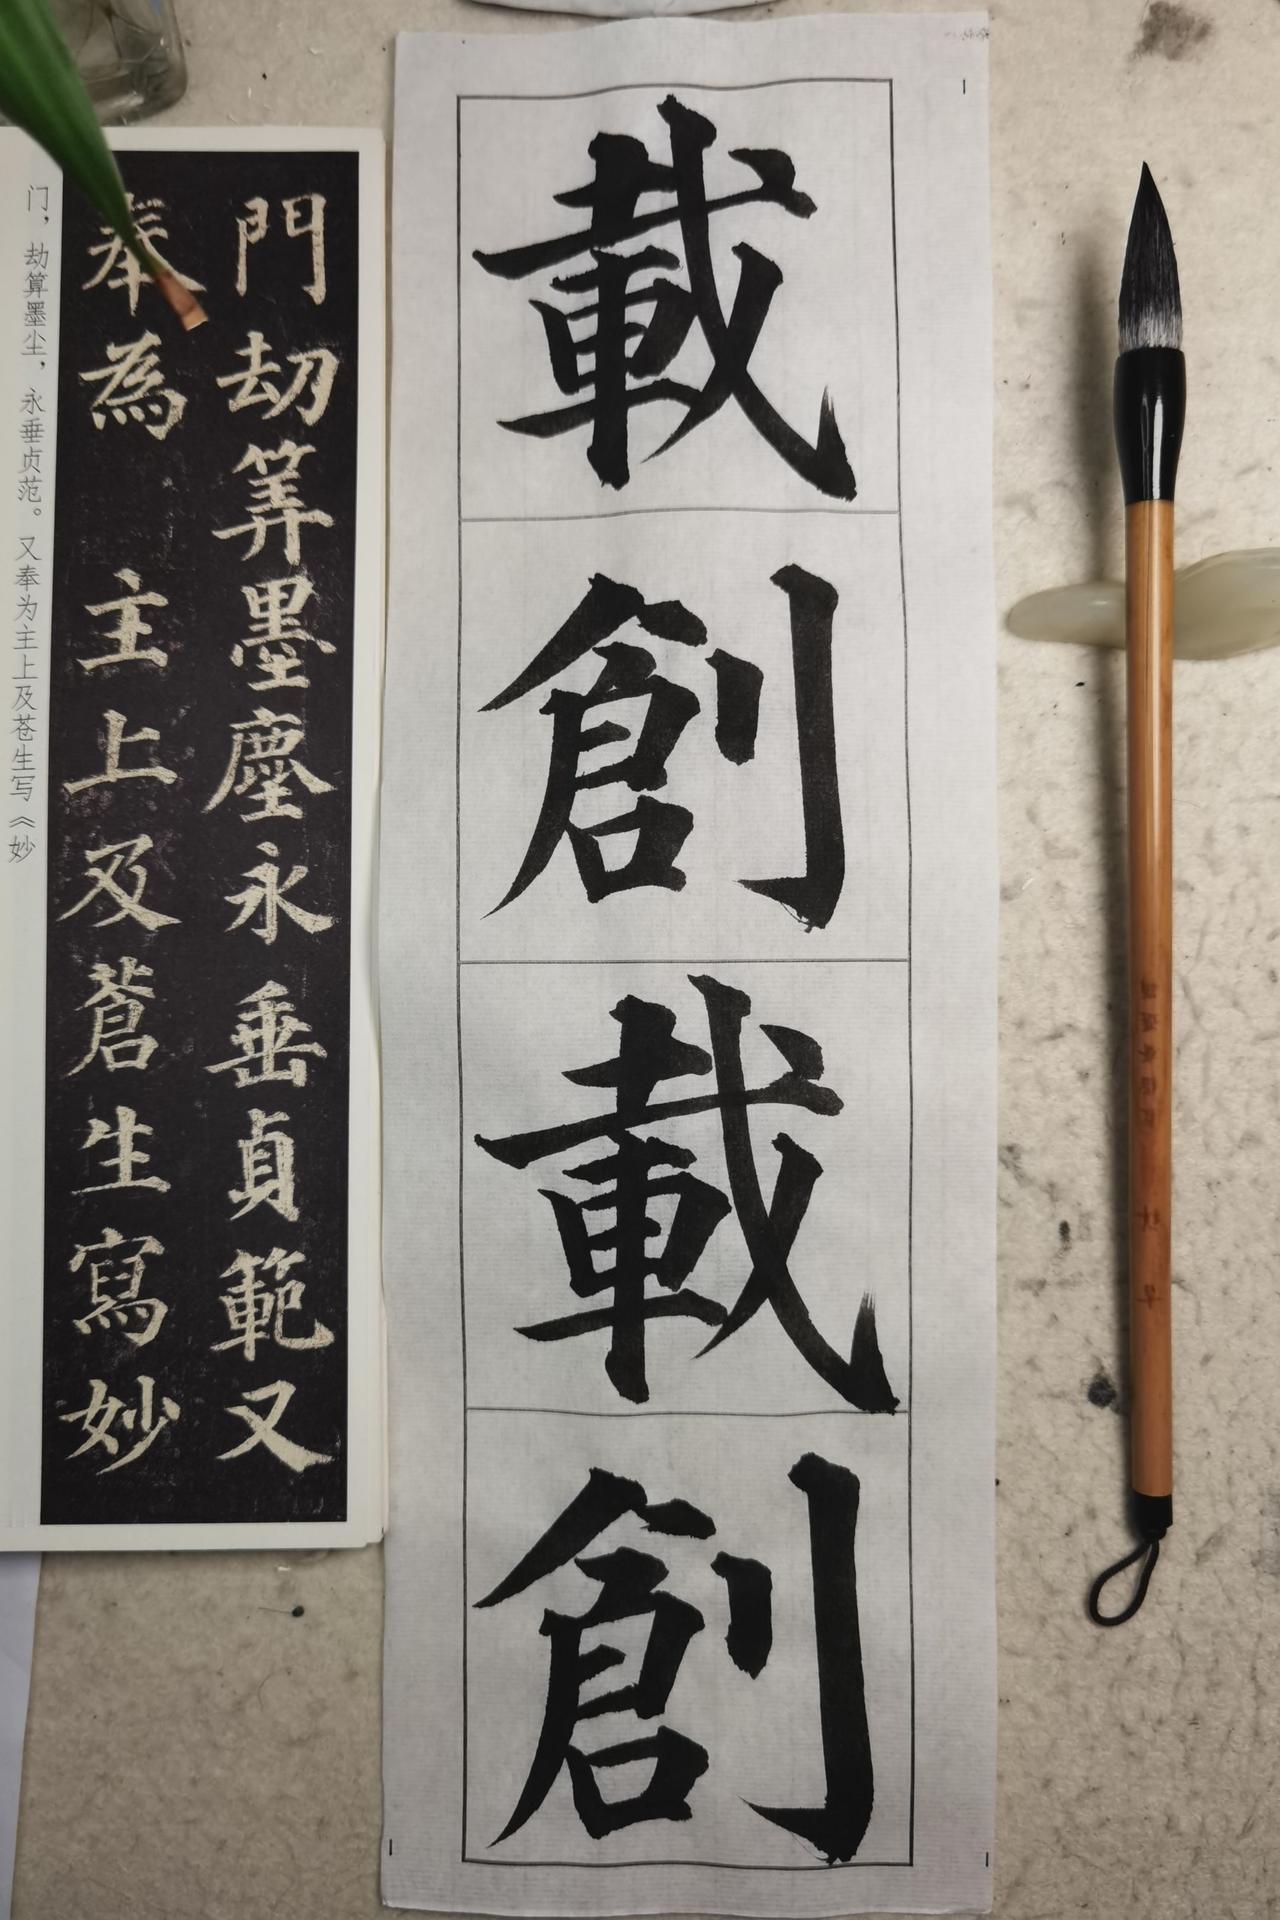 載
創
載
創
門劫筭墨塵永垂貞範又
奉為主上及蒼生寫妙
门，劫算墨尘，永垂贞范。又奉为主上及苍生写《妙